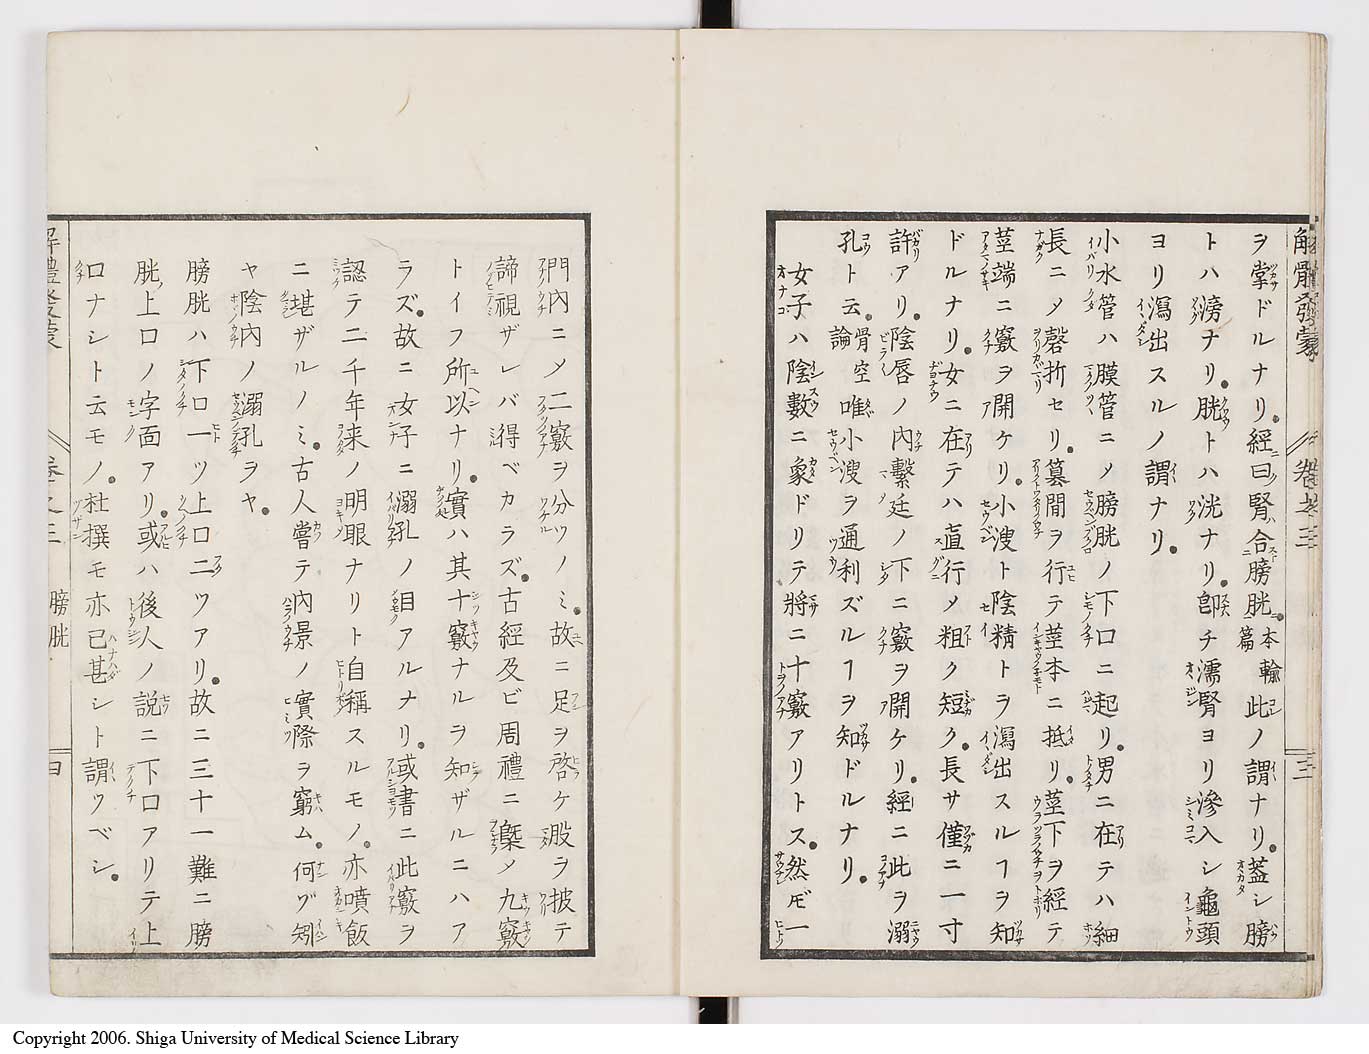 解體發蒙 卷之三 三
ヲ掌ドルナリ。經曰腎合膀胱。本輸篇此ノ謂ナリ。蓋シ膀
トハ滂ナリ。胱トハ洸ナリ。卽チ濡腎ヨリ滲入シ龜頭
ヨリ瀉出スルノ謂ナリ。
小水管ハ膜管ニメ膀胱ノ下口ニ起リ。男ニ在テハ細
長ニメ磬折セリ。篡間ヲ行テ莖本ニ抵リ。莖下ヲ經テ
莖端ニ竅ヲ開ケリ。小溲ト陰精トヲ瀉出スルヿヲ知
ドルナリ。女ニ在テハ直行メ粗ク短ク。長サ僅ニ一寸
許アリ。陰唇ノ內繫廷ノ下ニ竅ヲ開ケリ。經ニ此ヲ溺
孔ト云。骨空論唯小溲ヲ通利ズルヿヲ知ドルナリ。
女子ハ陰數ニ象ドリテ將ニ十竅アリトス。然𪜈一
門內ニメ二竅ヲ分ツノミ。故ニ足ヲ啓ケ股ヲ披テ
諦視ザレバ得ベカラズ。古經及ビ周禮ニ槩メ九竅
トイフ所以ナリ。實ハ其十竅ナルヲ知ザルニハア
ラズ。故ニ女子ニ溺孔ノ目アルナリ。或書ニ此竅ヲ
認テ二千年来ノ明眼ナリト自稱スルモノ。亦噴飯
ニ堪ザルノミ。古人嘗テ內景ノ實際ヲ窮ム。何ゾ矧
ヤ陰內ノ溺孔ヲヤ。
膀胱ハ下口一ツ上口二ツアリ。故ニ三十一難ニ膀
胱上口ノ字面アリ。或ハ後人ノ說ニ下口アリテ上
口ナシト云モノ。杜撰モ亦已甚シト謂ツベシ。
解體發蒙 卷之三 膀胱 四
Copyright 2006. Shiga University of Medical Science Library